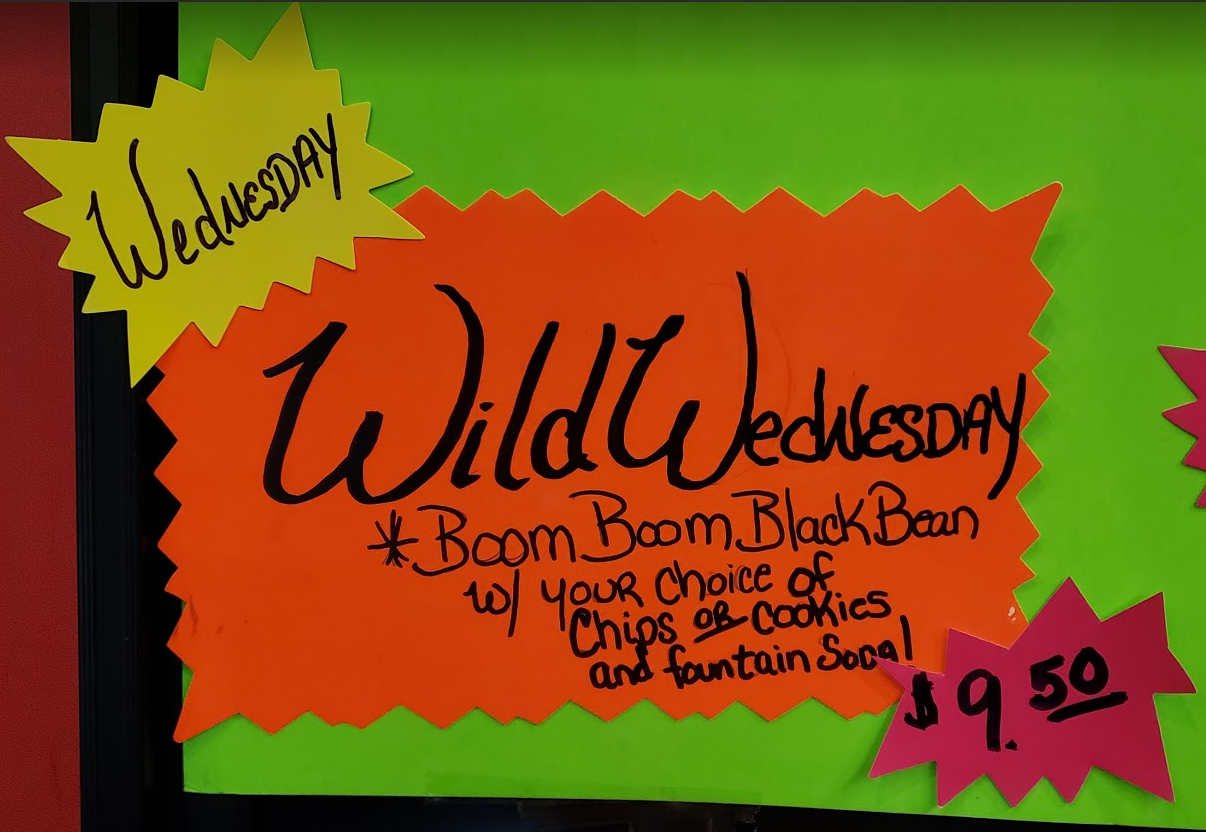 WedNESDAY
Wild WedNESDAY
*Boom Boom Black Bean
w/ YOUR Choice of
Chips OR Cookies
and fountain Soda!
$9.50